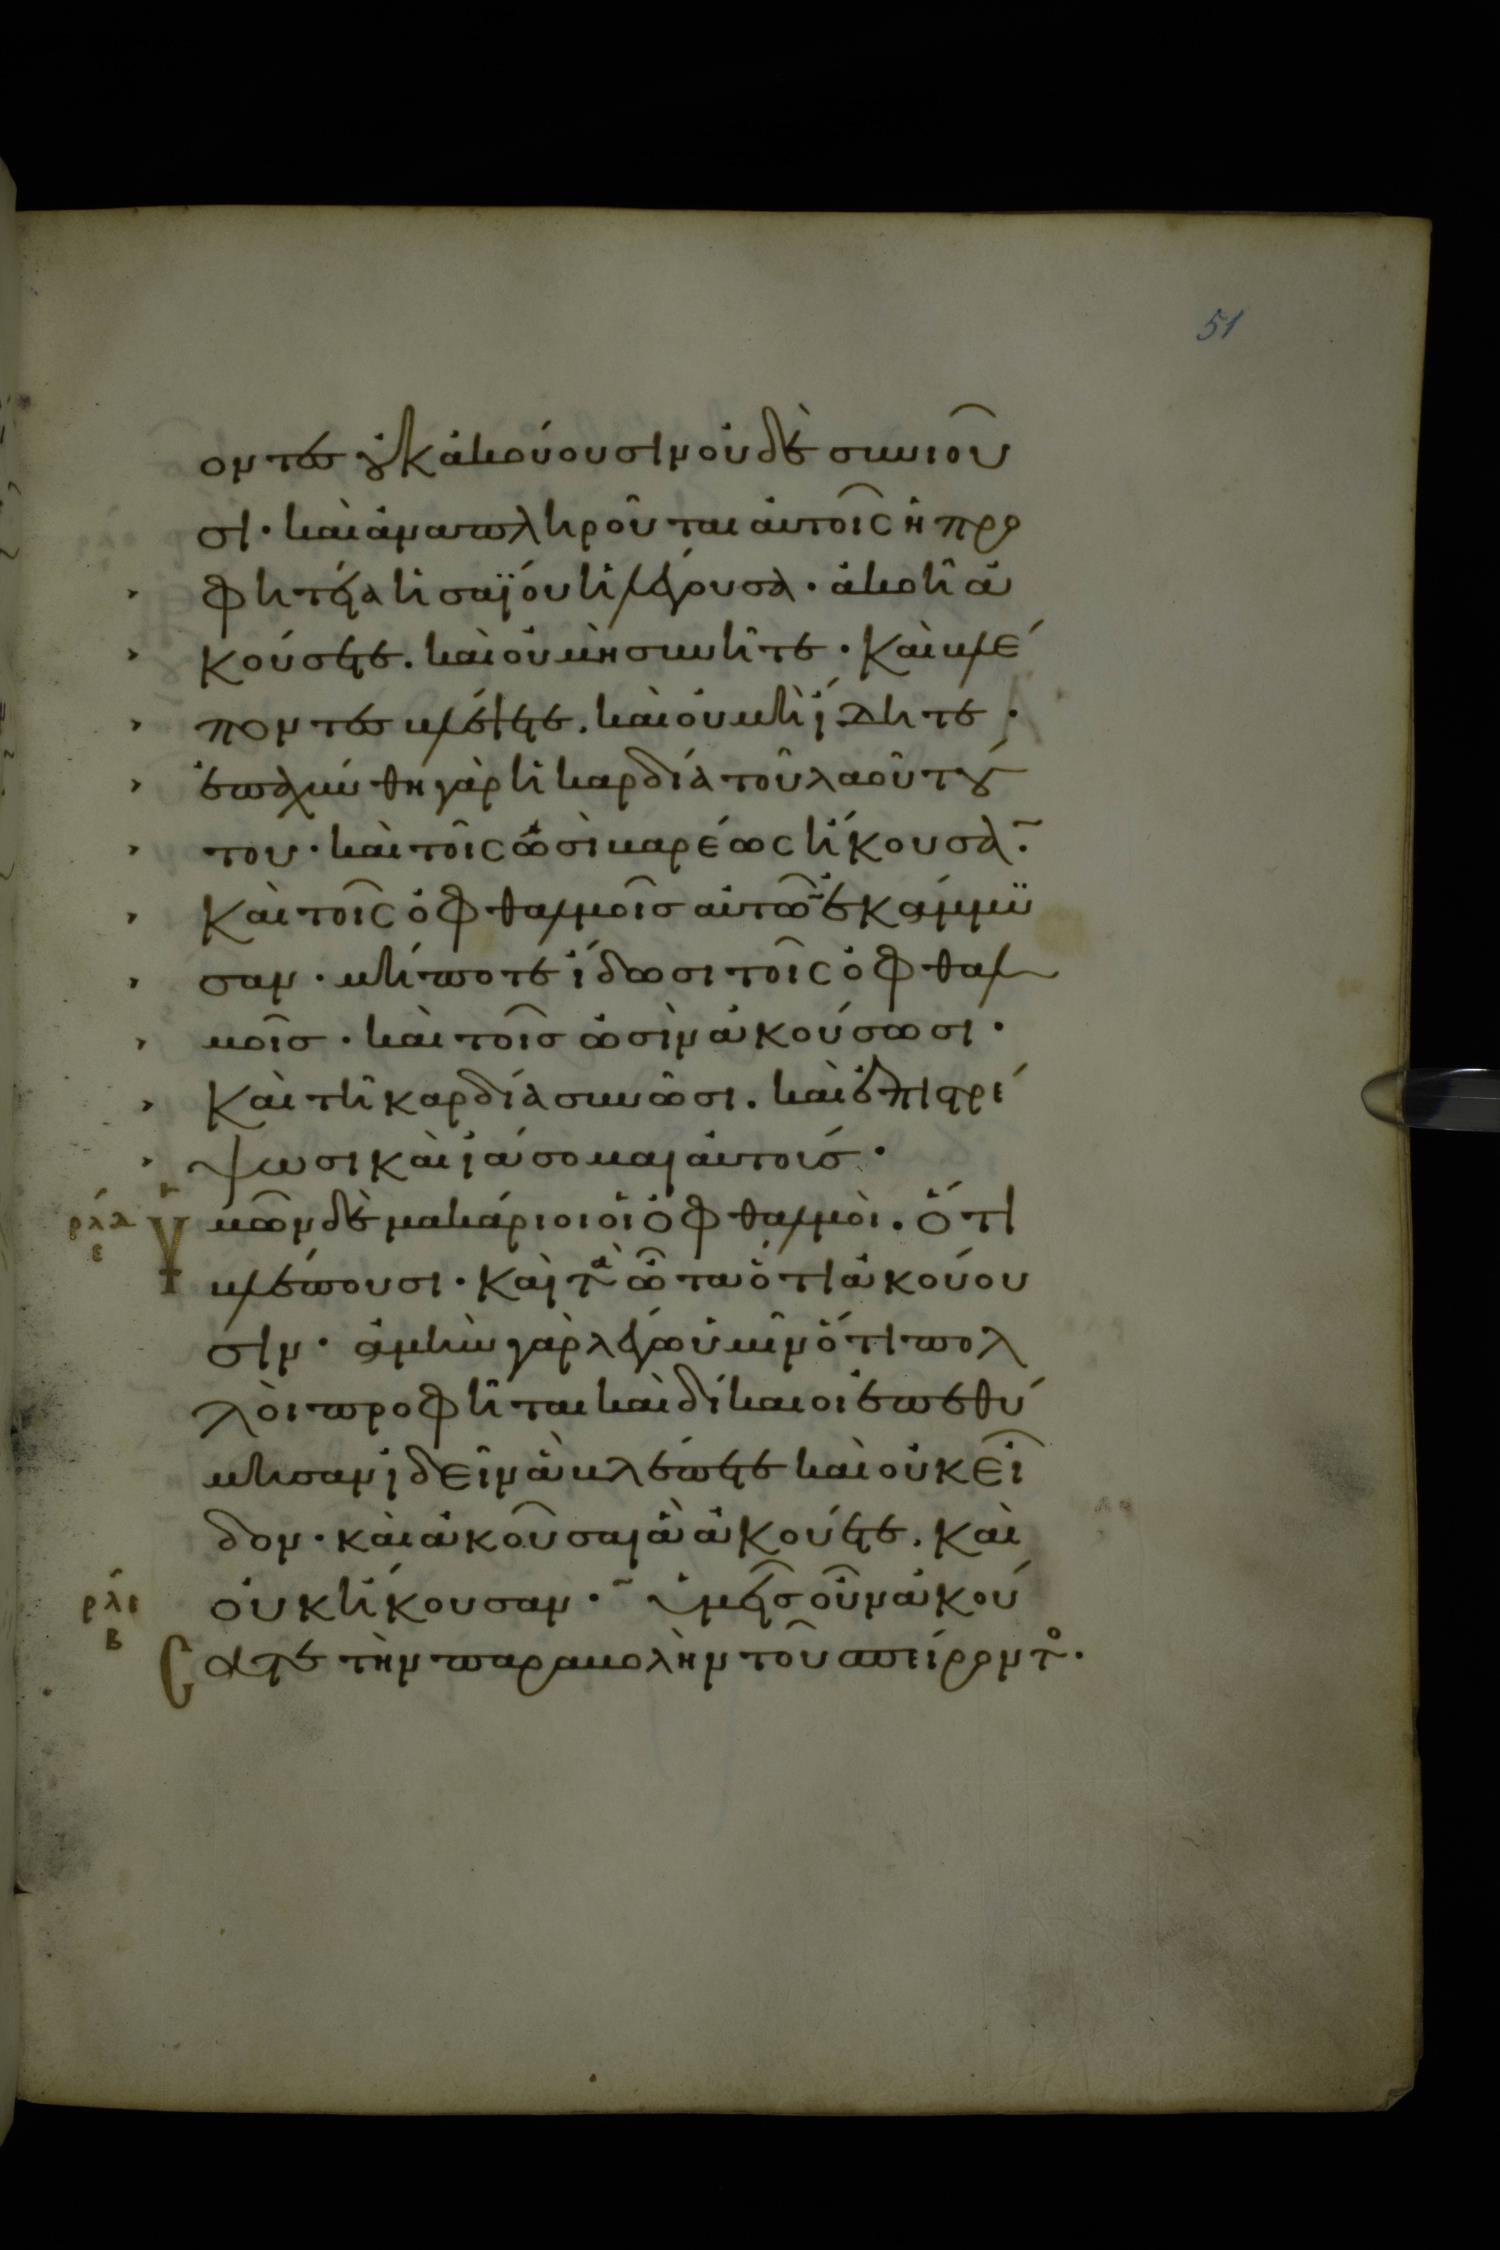 51
οντες οὐκ ἀκούουσιν οὐδὲ συνιοῦ
σι · καὶ ἀναπληροῦται αὐτοῖς ἡ προ
φητεία ἡσαΐου ἡ λέγουσα · ἀκοῆ ἀ
κούσετε . καὶ οὐ μὴ συνῆτε · Καὶ βλέ
ποντες βλέψετε . καὶ οὐ μὴ ἴδητε ·
ἐπαχύνθη γὰρ ἡ καρδία τοῦ λαοῦ τού
του · καὶ τοῖς ὠσὶ βαρέως ἤκουσαν ·
Καὶ τοῖς ὀφθαλμοῖς αὐτῶν ἐκάμμυ
σαν · μήποτε ἴδωσι τοῖς ὀφθαλ
μοῖς · καὶ τοῖς ὠσὶν ἀκούσωσι ·
Καὶ τῆ καρδία συνῶσι . καὶ ἐπιστρέ
ψωσι καὶ ἰάσομαι αὐτοίς ·
ρλδ ε Ὑμῶν δὲ μακάριοι οἱ ὀφθαλμοὶ . ὅτι
βλέπουσι · Καὶ τὰ ὦτα ὅτι ἀκούου
σιν · ἀμὴν γὰρ λέγω ὑμῖν ὅτι πολ
λοὶ προφῆται καὶ δίκαιοι ἐπεθύ
μησαν ἰδεῖν ἃ βλέπετε καὶ οὐκ εἶ
δον · καὶ ἀκοῦσαι ἃ ἀκούετε . Καὶ
ρλε β οὐκ ἤκουσαν · ὑμεῖς οὖν ἀκού
σατε τὴν παραβολὴν τοῦ σπείροντο ·